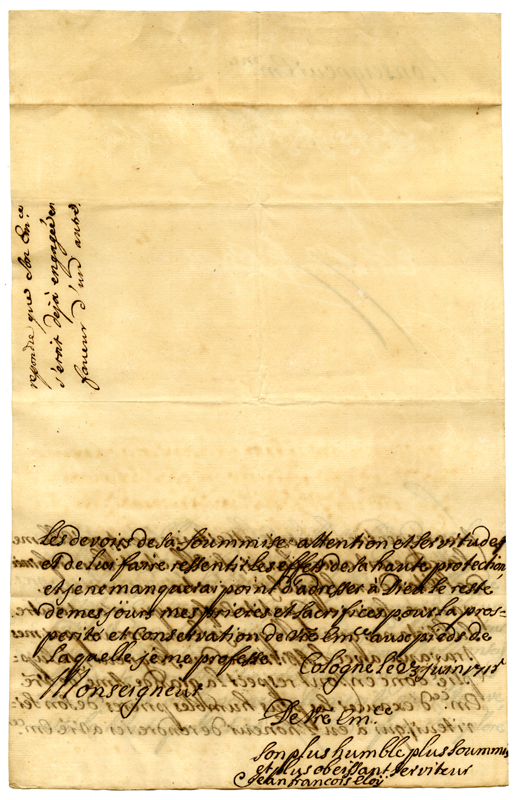 repondre que Son Em.ce
s'etoit deja engagée en
faveur d'un autre.
les devoirs de sa soummise attention et servitude,
et de lui faire ressentir les effets de sa haute protection
et je ne manquerai point d'adresser à Dieu le reste
de mes jours mes prieres et sacrifices pour la pros-
perité et Conservation de Vre Em.ce aux pieds de
Laquelle je me professe Cologne le 23 juin 1715
Monseigneur
De Vre Em.ce
son plus humble plus soummis
et plus obeissant serviteur
Jean francois Eloÿ